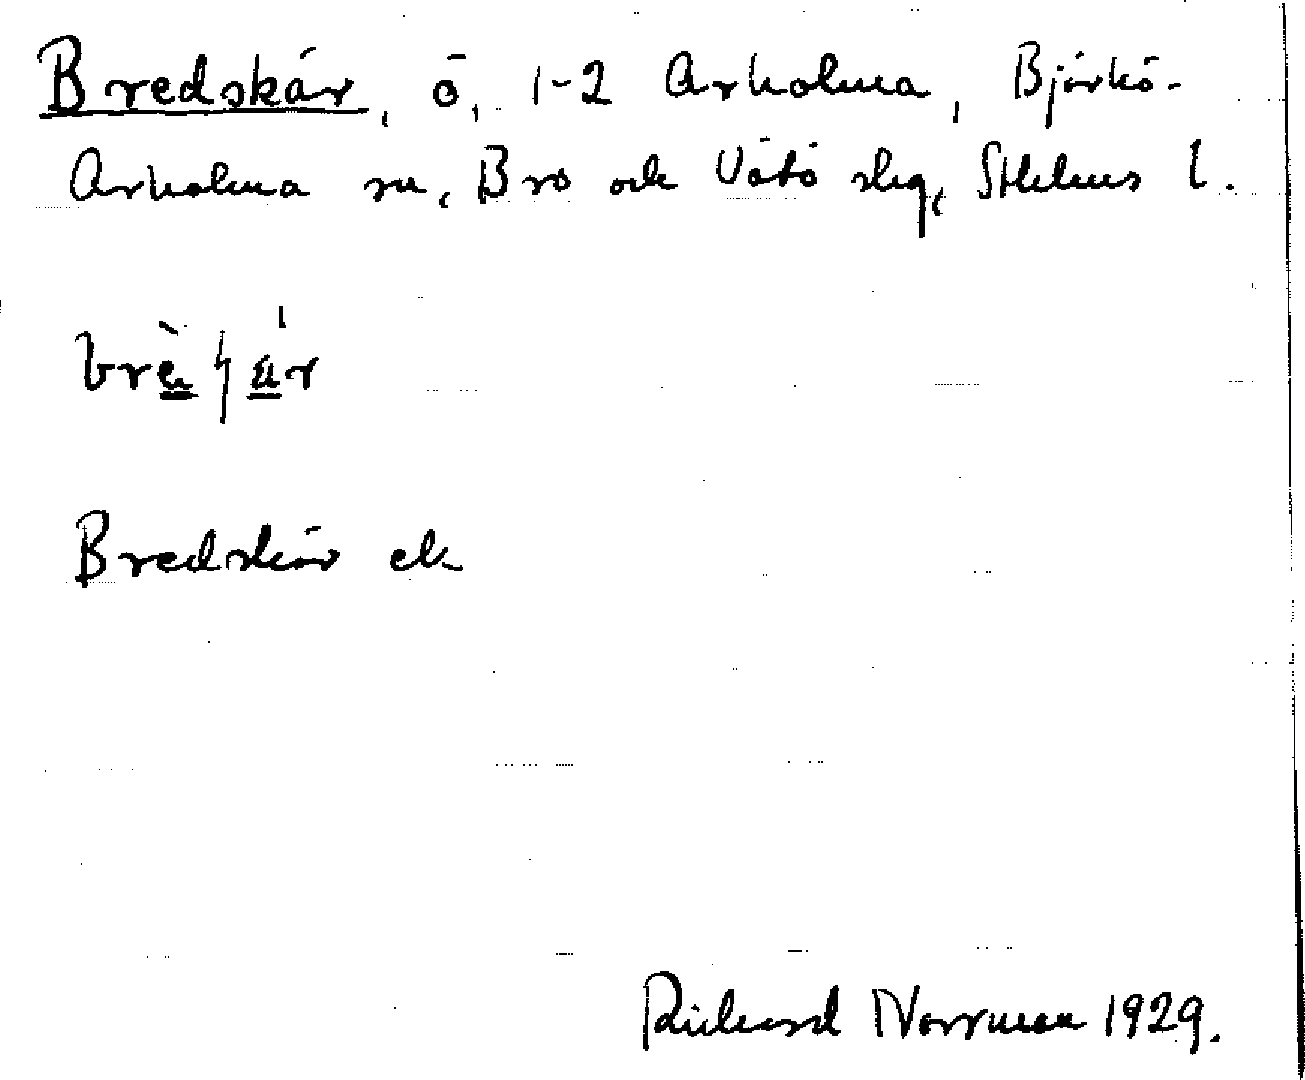 Bredskär, ö, 1-2 Arholma, Björkö-
Arholma sn, Bro och Vätö slg, Sthlms l.
Bredskär ek
Rickard Norrman 1929.